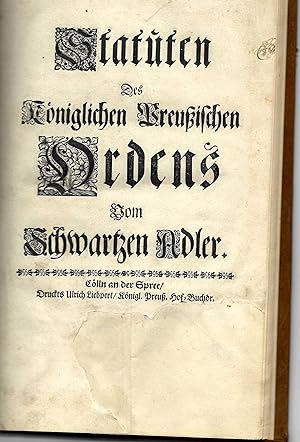 Statuten
Des
Königlichen Preußischen
Ordens
Vom
Schwartzen Adler.
Cölln an der Spree/
Druckts Ulrich Liebpert/ Königl. Preuß. Hof-Buchdr.